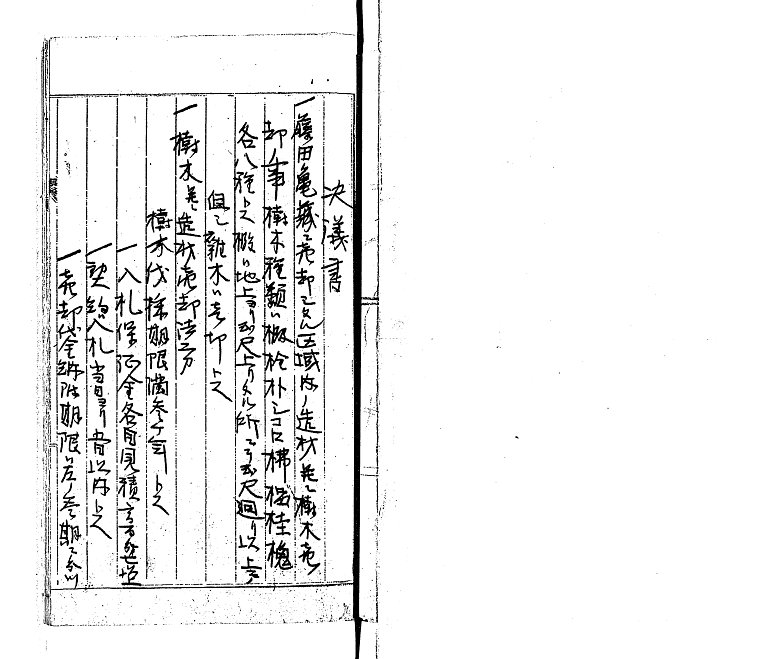 決議書
一藤田亀城ニ売却シタル区域内ノ造材並ニ樹木売
却ノ事樹木種類ハ椴栓朴シコロ梻楢桂槐
各八種トス椴ハ地上ヨリ尺上リタル所ニテ尺廻リ以上
但シ雑木ハ売却トス
一樹木並造材売却法方
樹木伐採期限満参ケ年トス
一入札保証金各自見積高
一契約入札当日ヨリ 以内トス
一売却代金納附期限ハ左ノ参期ニ分ツ